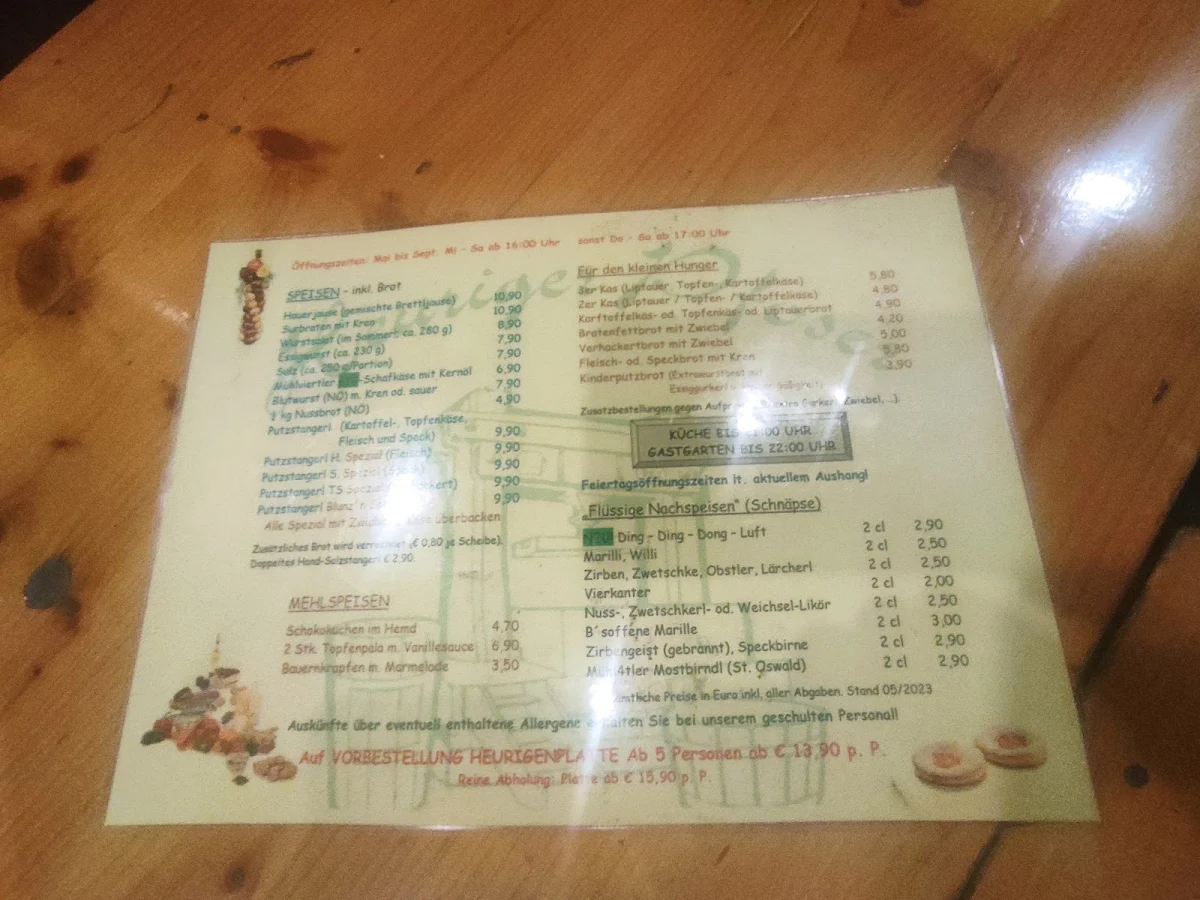 Öffnungszeiten: Mai bis Sept. Mi - Sa ab 16:00 Uhr sonst Do - Sa ab 17:00 Uhr
SPEISEN - inkl. Brot
Hauerjause (gemischte Brettljause) 10,90
Surbraten mit Kren 10,90
Wurstsalat (im Sommer; ca. 280 g) 8,90
Essigwurst (ca. 230 g) 7,90
Sulz (ca. 250 g/Portion) 7,90
Mühlviertler -Schafkäse mit Kernöl 6,90
Blutwurst (NÖ) m. Kren od. sauer 7,90
kg Nussbrot (NÖ) 4,90
Putzstangerl (Kartoffel-, Topfenkäse,
Fleisch und Speck) 9,90
Putzstangerl H. Spezial (Fleisch) 9,90
Putzstangerl S. Spezial (Speck) 9,90
Putzstangerl TS Spezial 9,90
Putzstangerl Blunz'n 9,90
Alle Spezial mit überbacken
Zusätzliches Brot wird verrechnet (€ 0,80 je Scheibe).
Doppeltes Hand-Salzstangerl € 2,90.
MEHLSPEISEN
Schokokuchen im Hemd 4,70
2 Stk. Topfenpala m. Vanillesauce 6,90
Bauernkrapfen m. Marmelade 3,50
Für den kleinen Hunger
3er Kas (Liptauer, Topfen-, Kartoffelkäse) 5,80
2er Kas (Liptauer / Topfen- / Kartoffelkäse) 4,80
Karftoffelkäs- od. Topfenkäs- od. Liptauerbrot 4,90
Bratenfettbrot mit Zwiebel 4,20
Verhackertbrot mit Zwiebel 5,00
Fleisch- od. Speckbrot mit Kren 5,80
Kinderputzbrot (Extrawurstbrot mit 3,90
Essiggurkerl
Zusatzbestellungen gegen Aufpreis Zwiebel, ..).
KÜCHE BIS UHR
GASTGARTEN BIS 22:00 UHR
Feiertagsöffnungszeiten lt. aktuellem Aushang!
„Flüssige Nachspeisen" (Schnäpse)
NEU! Ding - Ding - Dong - Luft 2 cl 2,90
Marilli, Willi 2 cl 2,50
Zirben, Zwetschke, Obstler, Lärcherl 2 cl 2,50
Vierkanter 2 cl 2,00
Nuss-, Zwetschkerl- od. Weichsel-Likör 2 cl 2,50
B´soffene Marille 2 cl 3,00
Zirbengeist (gebrannt), Speckbirne 2 cl 2,90
Mühl4tler Mostbirndl (St. Oswald) 2 cl 2,90
Sämtliche Preise in Euro inkl. aller Abgaben. Stand 05/2023
Auskünfte über eventuell enthaltene Allergene erhalten Sie bei unserem geschulten Personal!
Auf VORBESTELLUNG HEURIGENPLATTE Ab 5 Personen ab € 13,90 p. P.
Reine Abholung: Platte ab € 15,90 p. P.